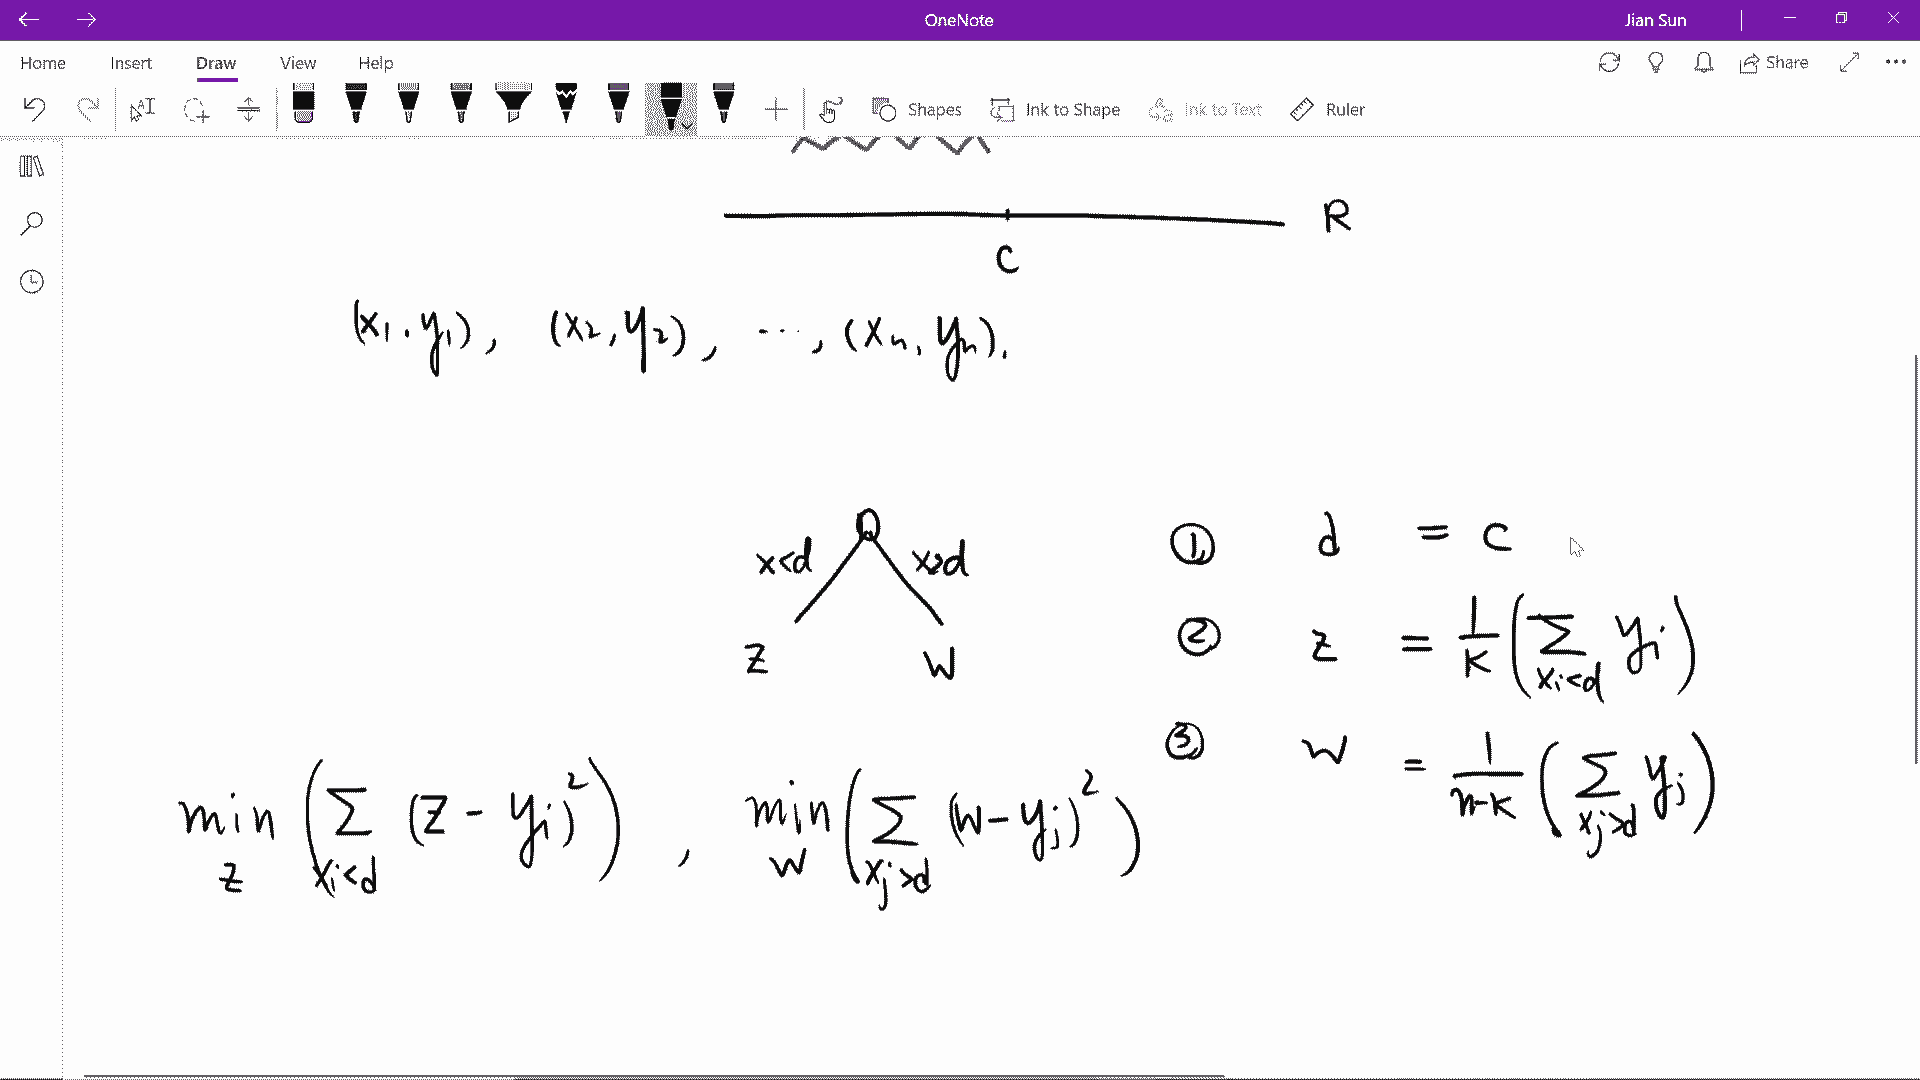 OneNote
Jian Sun
Home Insert Draw View Help
Share
Shapes Ink to Shape Ink to Text Ruler
R
c
(x₁, y₁), (x₂, y₂), ..., (xₙ, yₙ).
x<d x>d
z w
① d = c
② z = 1/k (∑_{xᵢ<d} yᵢ)
③ w = 1/(n-k) (∑_{xⱼ>d} yⱼ)
min_z (∑_{xᵢ<d} (z - yᵢ)²), min_w (∑_{xⱼ>d} (w - yⱼ)²)